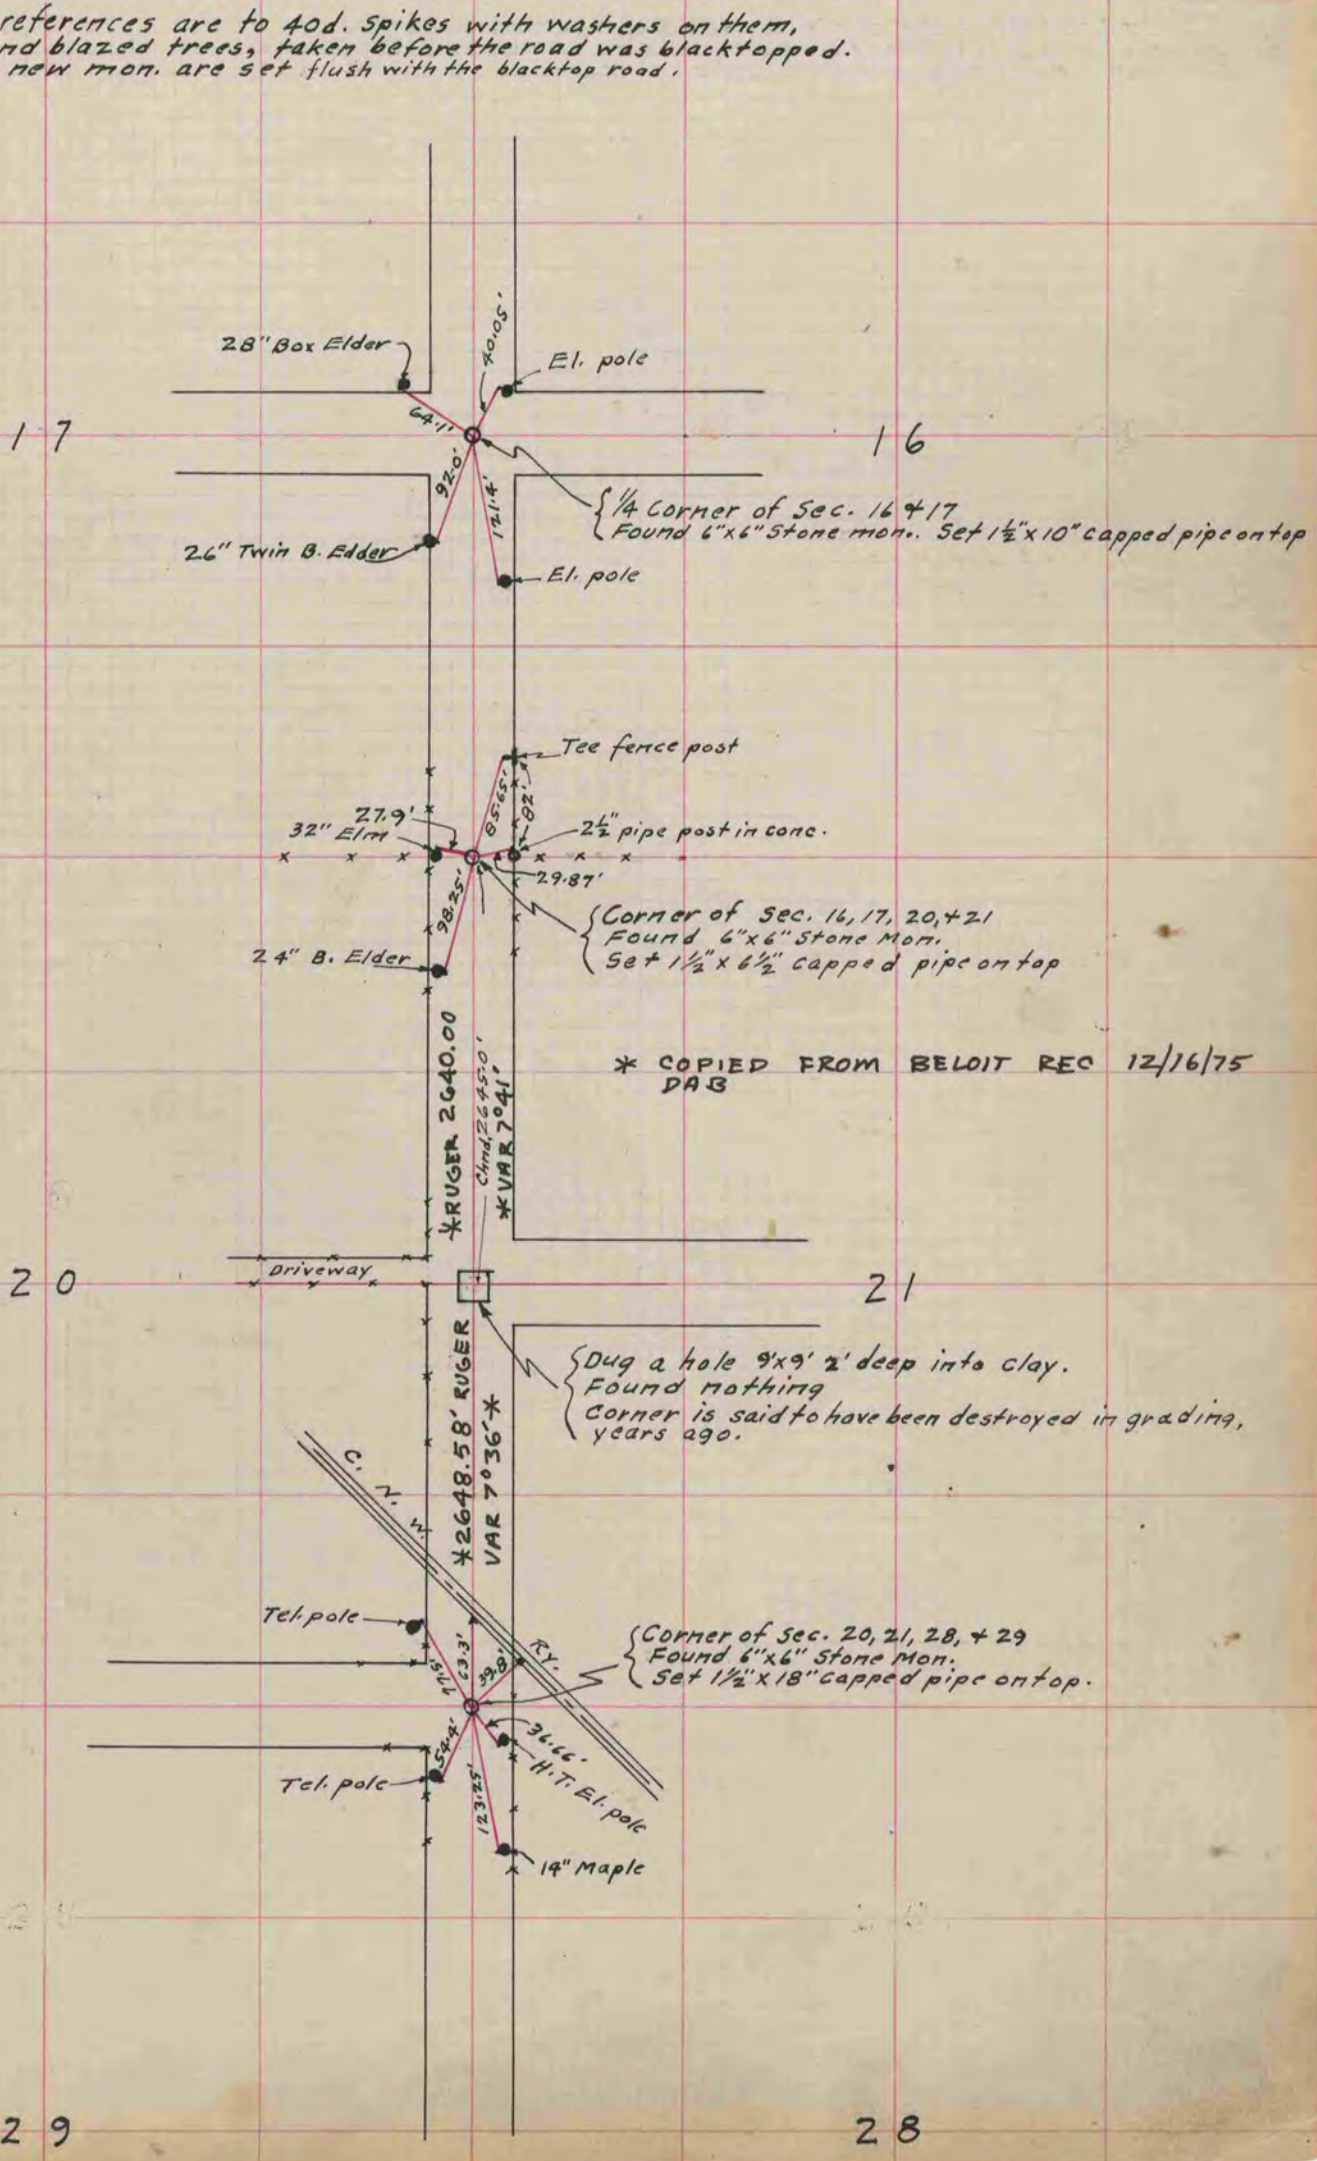 references are to 40d. spikes with washers on them,
nd blazed trees, taken before the road was blacktopped.
new mon. are set flush with the blacktop road.
28" Box Elder
40.05'
El. pole
64.1'
17
16
92.0'
121.4'
1/4 Corner of Sec. 16 & 17
Found 6"x6" Stone mon.. Set 1½"x10" capped pipe on top
26" Twin B. Edder
El. pole
Tee fence post
85.65'
82'
27.9'
32" Elm
2½" pipe post in conc.
29.87'
98.25'
Corner of Sec. 16, 17, 20, & 21
Found 6"x6" Stone Mon.
Set 1½" x 6½" capped pipe on top
24" B. Elder
*RUGER 2640.00
Chnd. 2645.0'
*VAR 7°41'
* COPIED FROM BELOIT REC 12/16/75
DAB
Driveway
20
21
Dug a hole 9'x9' 2' deep into clay.
Found nothing
Corner is said to have been destroyed in grading,
years ago.
*2648.58' RUGER
VAR 7°36'*
C. N. W. RY.
Tel. pole
77.5'
63.3'
39.8'
Corner of Sec. 20, 21, 28, & 29
Found 6"x6" Stone Mon.
Set 1½"x18" capped pipe on top.
54.4'
36.66'
H.T. El. pole
Tel. pole
123.25'
14" Maple
29
28